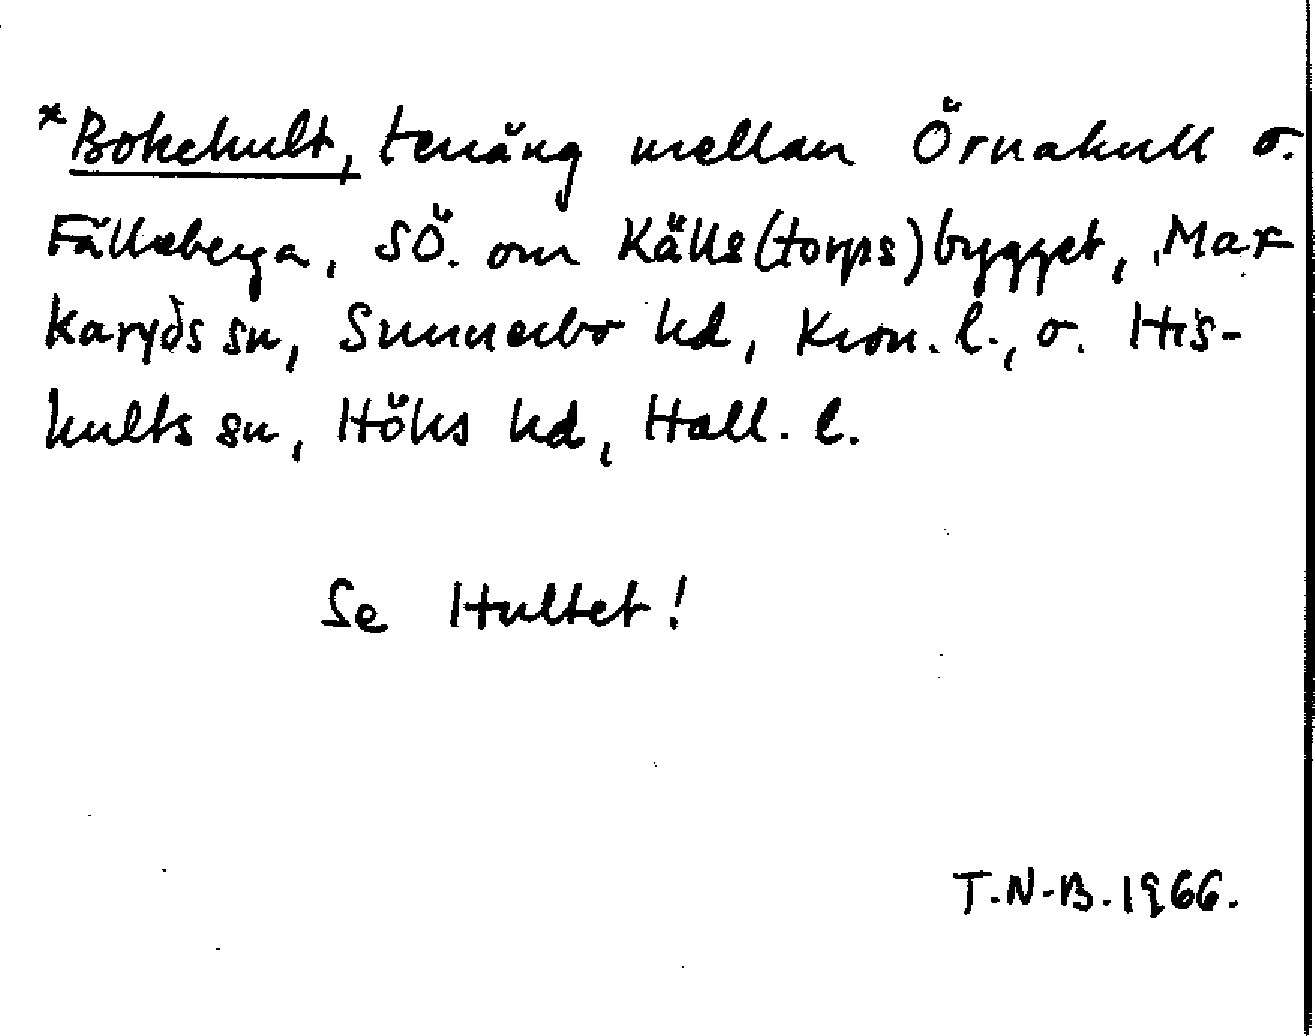 *Bokehult, terräng mellan Örnakull o.
Fälleberga, SÖ. om Källs(torps)bygget, Mar-
karyds sn, Sunnerbo hd, Kron. l., o. His-
hults sn, Höks hd, Hall. l.
Se Hultet!
T.N-B. 1966.